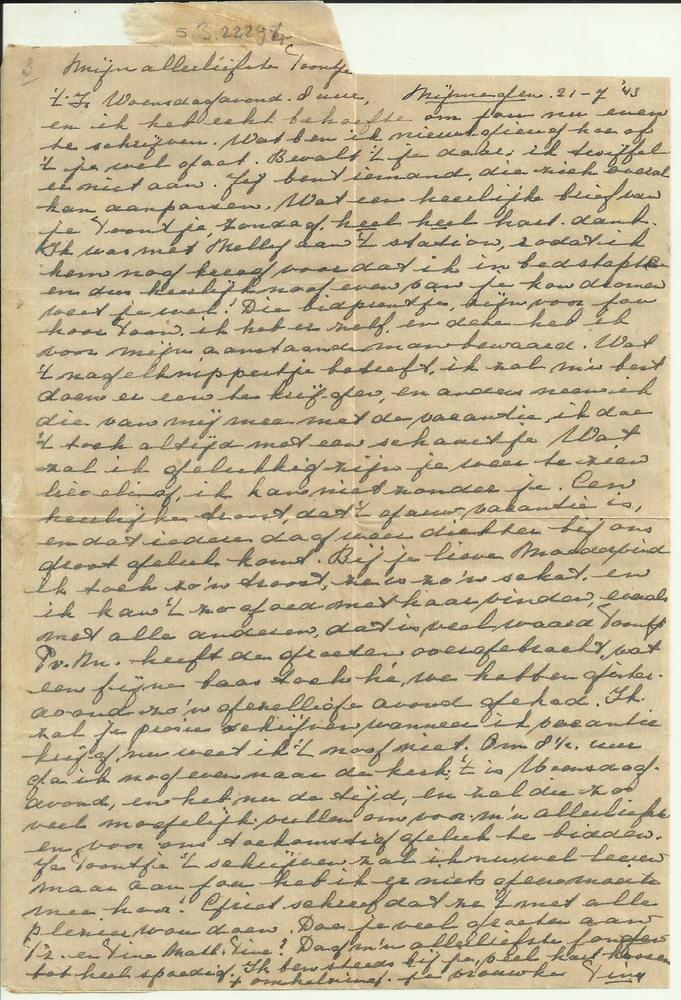 5.3.2223 4
3
Mijn allerliefste Toontje
't Is Woensdagavond. 8 uur, Nijmegen. 21-7 '43
en ik heb echt behoefte om jou nu even
te schrijven. Wat ben ik nieuwsgierig hoe of
't je wel gaat. Bevalt 't je daar, ik twijfel
er niet aan. Jij bent iemand, die zich overal
kan aanpassen. Wat een heerlijke brief van
je Toontje, zondag. heel heel hart. dank.
Ik was met Nelly aan 't station, zodat ik
hem nog kreeg voordat ik in bed stapte
en dus heerlijk nog even van je kon dromen
weet je wel! Die bidprentje, zijn voor jou
hoor Toon, ik heb er zelf, en deze heb ik
voor mijn aanstaande man bewaard. Wat
't nagelknippertje betreft, ik zal m'n best
doen er een te krijgen, en anders neem ik
die van mij mee met de vacantie, ik doe
't toch altijd met een schaartje. Wat
zal ik gelukkig zijn je weer te zien
lieveling, ik kan niet zonder je. Een
heerlijke troost, dat 't gauw vacantie is,
en dat iedere dag weer dichter bij ons
groot geluk komt. Bij je lieve Moeder vind
ik toch zo'n troost, ze is zo'n schat. en
ik kan 't zo goed met haar vinden, evenals
met alle anderen, dat is veel waard Toontje
Pr. Mn. heeft de groeten overgebracht, wat
een fijne baas toch hé, we hebben gister-
avond zo'n gezellige avond gehad. Ik
zal je precies schrijven wanneer ik vacantie
krijg, nu weet ik 't nog niet. Om 8½ uur
ga ik nog even naar de kerk; 't is Woensdag-
avond, en heb nu de tijd, en zal die zoo
veel mogelijk vullen om voor m'n allerliefste
en voor ons toekomstig geluk te bidden.
Ja Toontje 't schrijven zal ik nu wel leren
maar aan jou heb ik er niets geen moeite
mee hoor! Griet schreef dat ze 't met alle
plezier wou doen. Doe je veel groeten aan
Tr. en Tine Math. Tine? Dag m'n allerliefste jongen
tot heel spoedig. Ik ben steeds bij je, veel hart kussen
+ omhelzing. je vrouwke Tiny